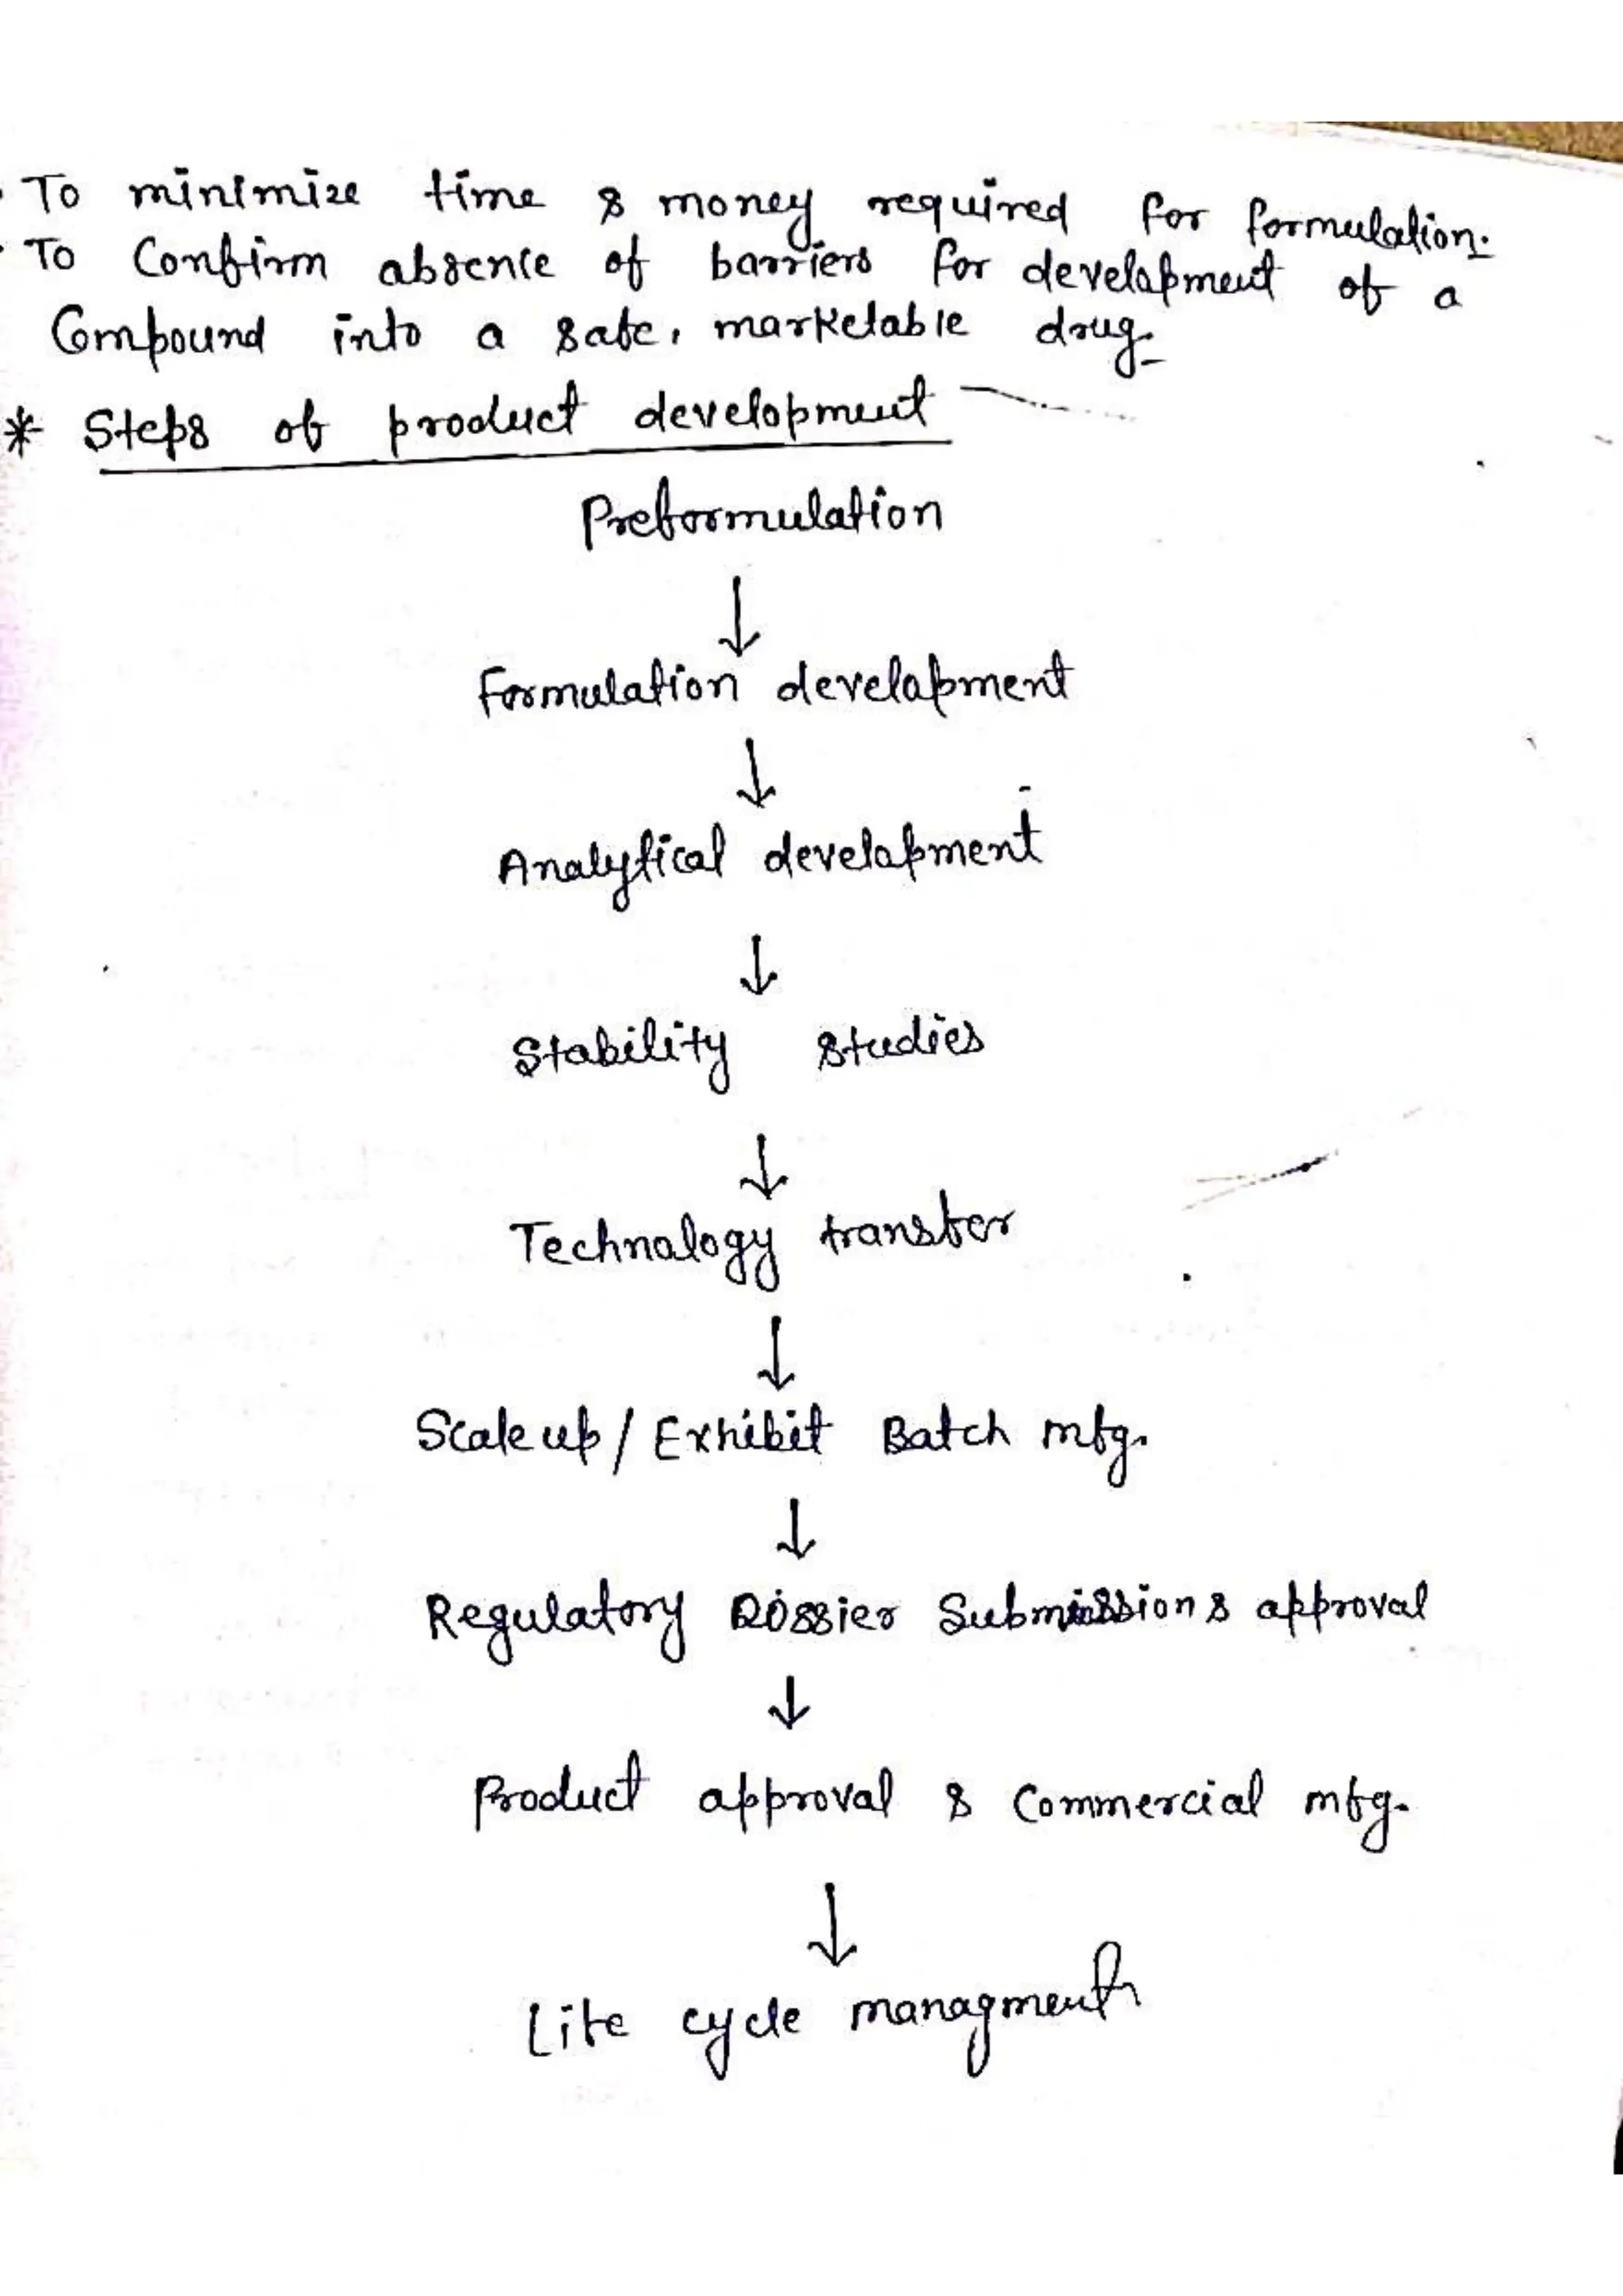 · To minimize time & money required for formulation.
· To Confirm absence of barriers for development of a
Compound into a safe, marketable drug.
* Steps of product development
Preformulation
↓
Formulation development
↓
Analytical development
↓
Stability studies
↓
Technology transfer
↓
Scale up / Exhibit Batch mfg.
↓
Regulatory Dossier Submission & approval
↓
Product approval & Commercial mfg.
↓
Life cycle managment